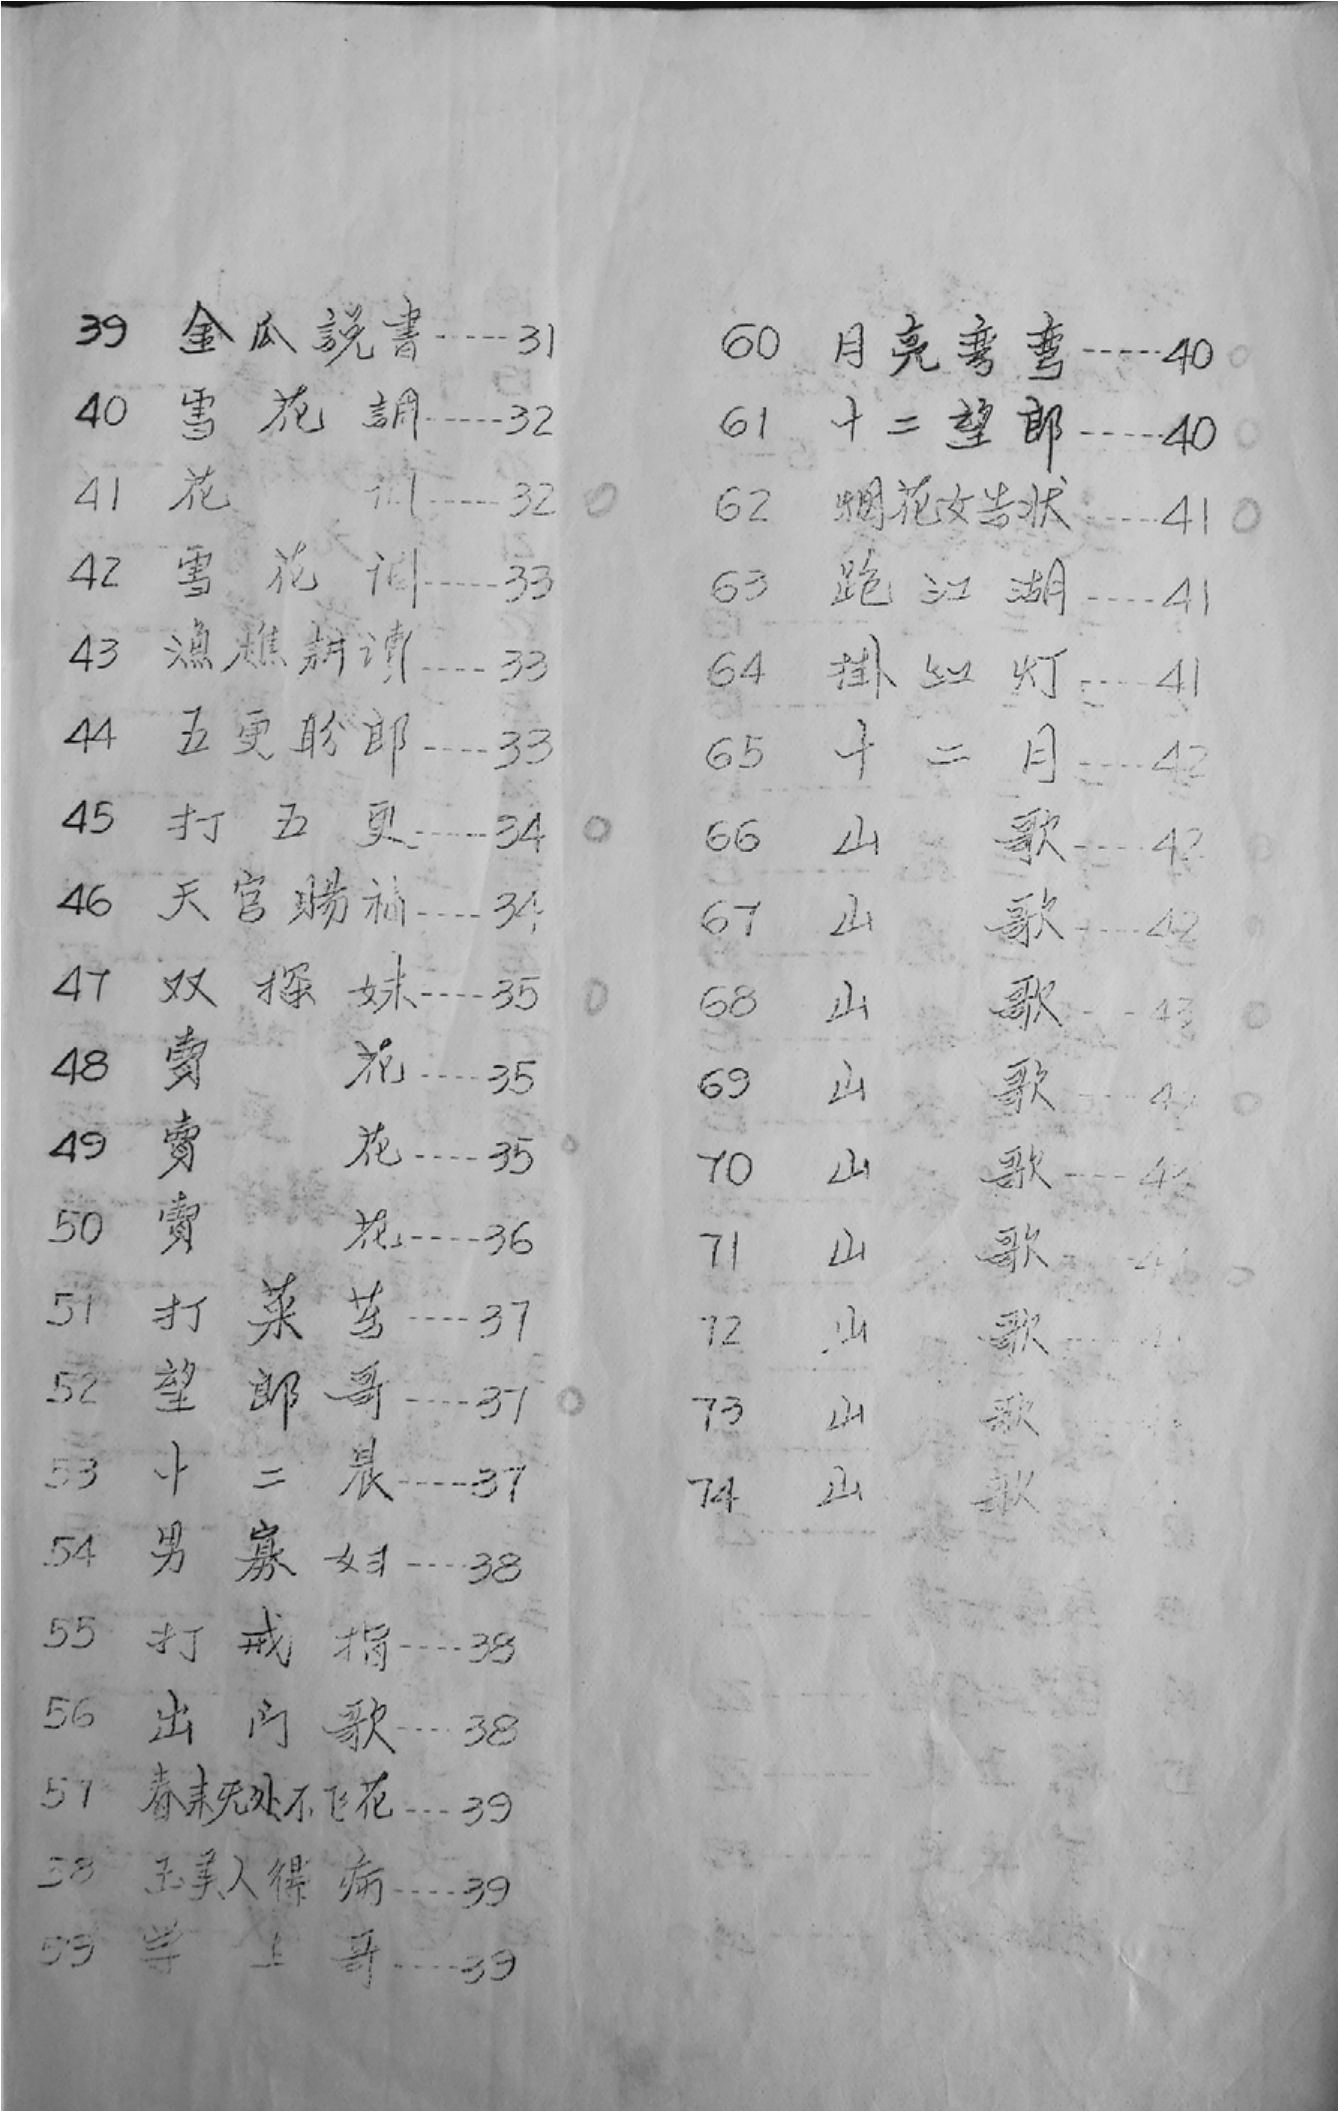 39 金瓜説書-----31
40 雪花調-----32
41 花调-----32
42 雪花调-----33
43 漁樵耕读----33
44 五更盼郎----33
45 打五更-----34
46 天官賜福----34
47 双探妹----35
48 賣花----35
49 賣花----35
50 賣花----36
51 打菜苔----37
52 望郎哥----37
53 十二晨----37
54 男寡妇----38
55 打戒指----38
56 出门歌----38
57 春来无处不飞花---39
58 玉美人得病----39
59 上哥----39
60 月亮弯弯----40
61 十二望郎-----40
62 烟花女告状----41
63 跑江湖----41
64 掛红灯----41
65 十二月----42
66 山歌----42
67 山歌----42
68 山歌---43
69 山歌
70 山歌
71 山歌
72 山歌
73 山歌
74 山歌